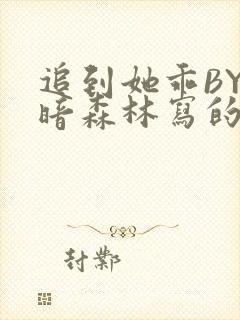 追到她乖BY
暗森林寫的
封鄴